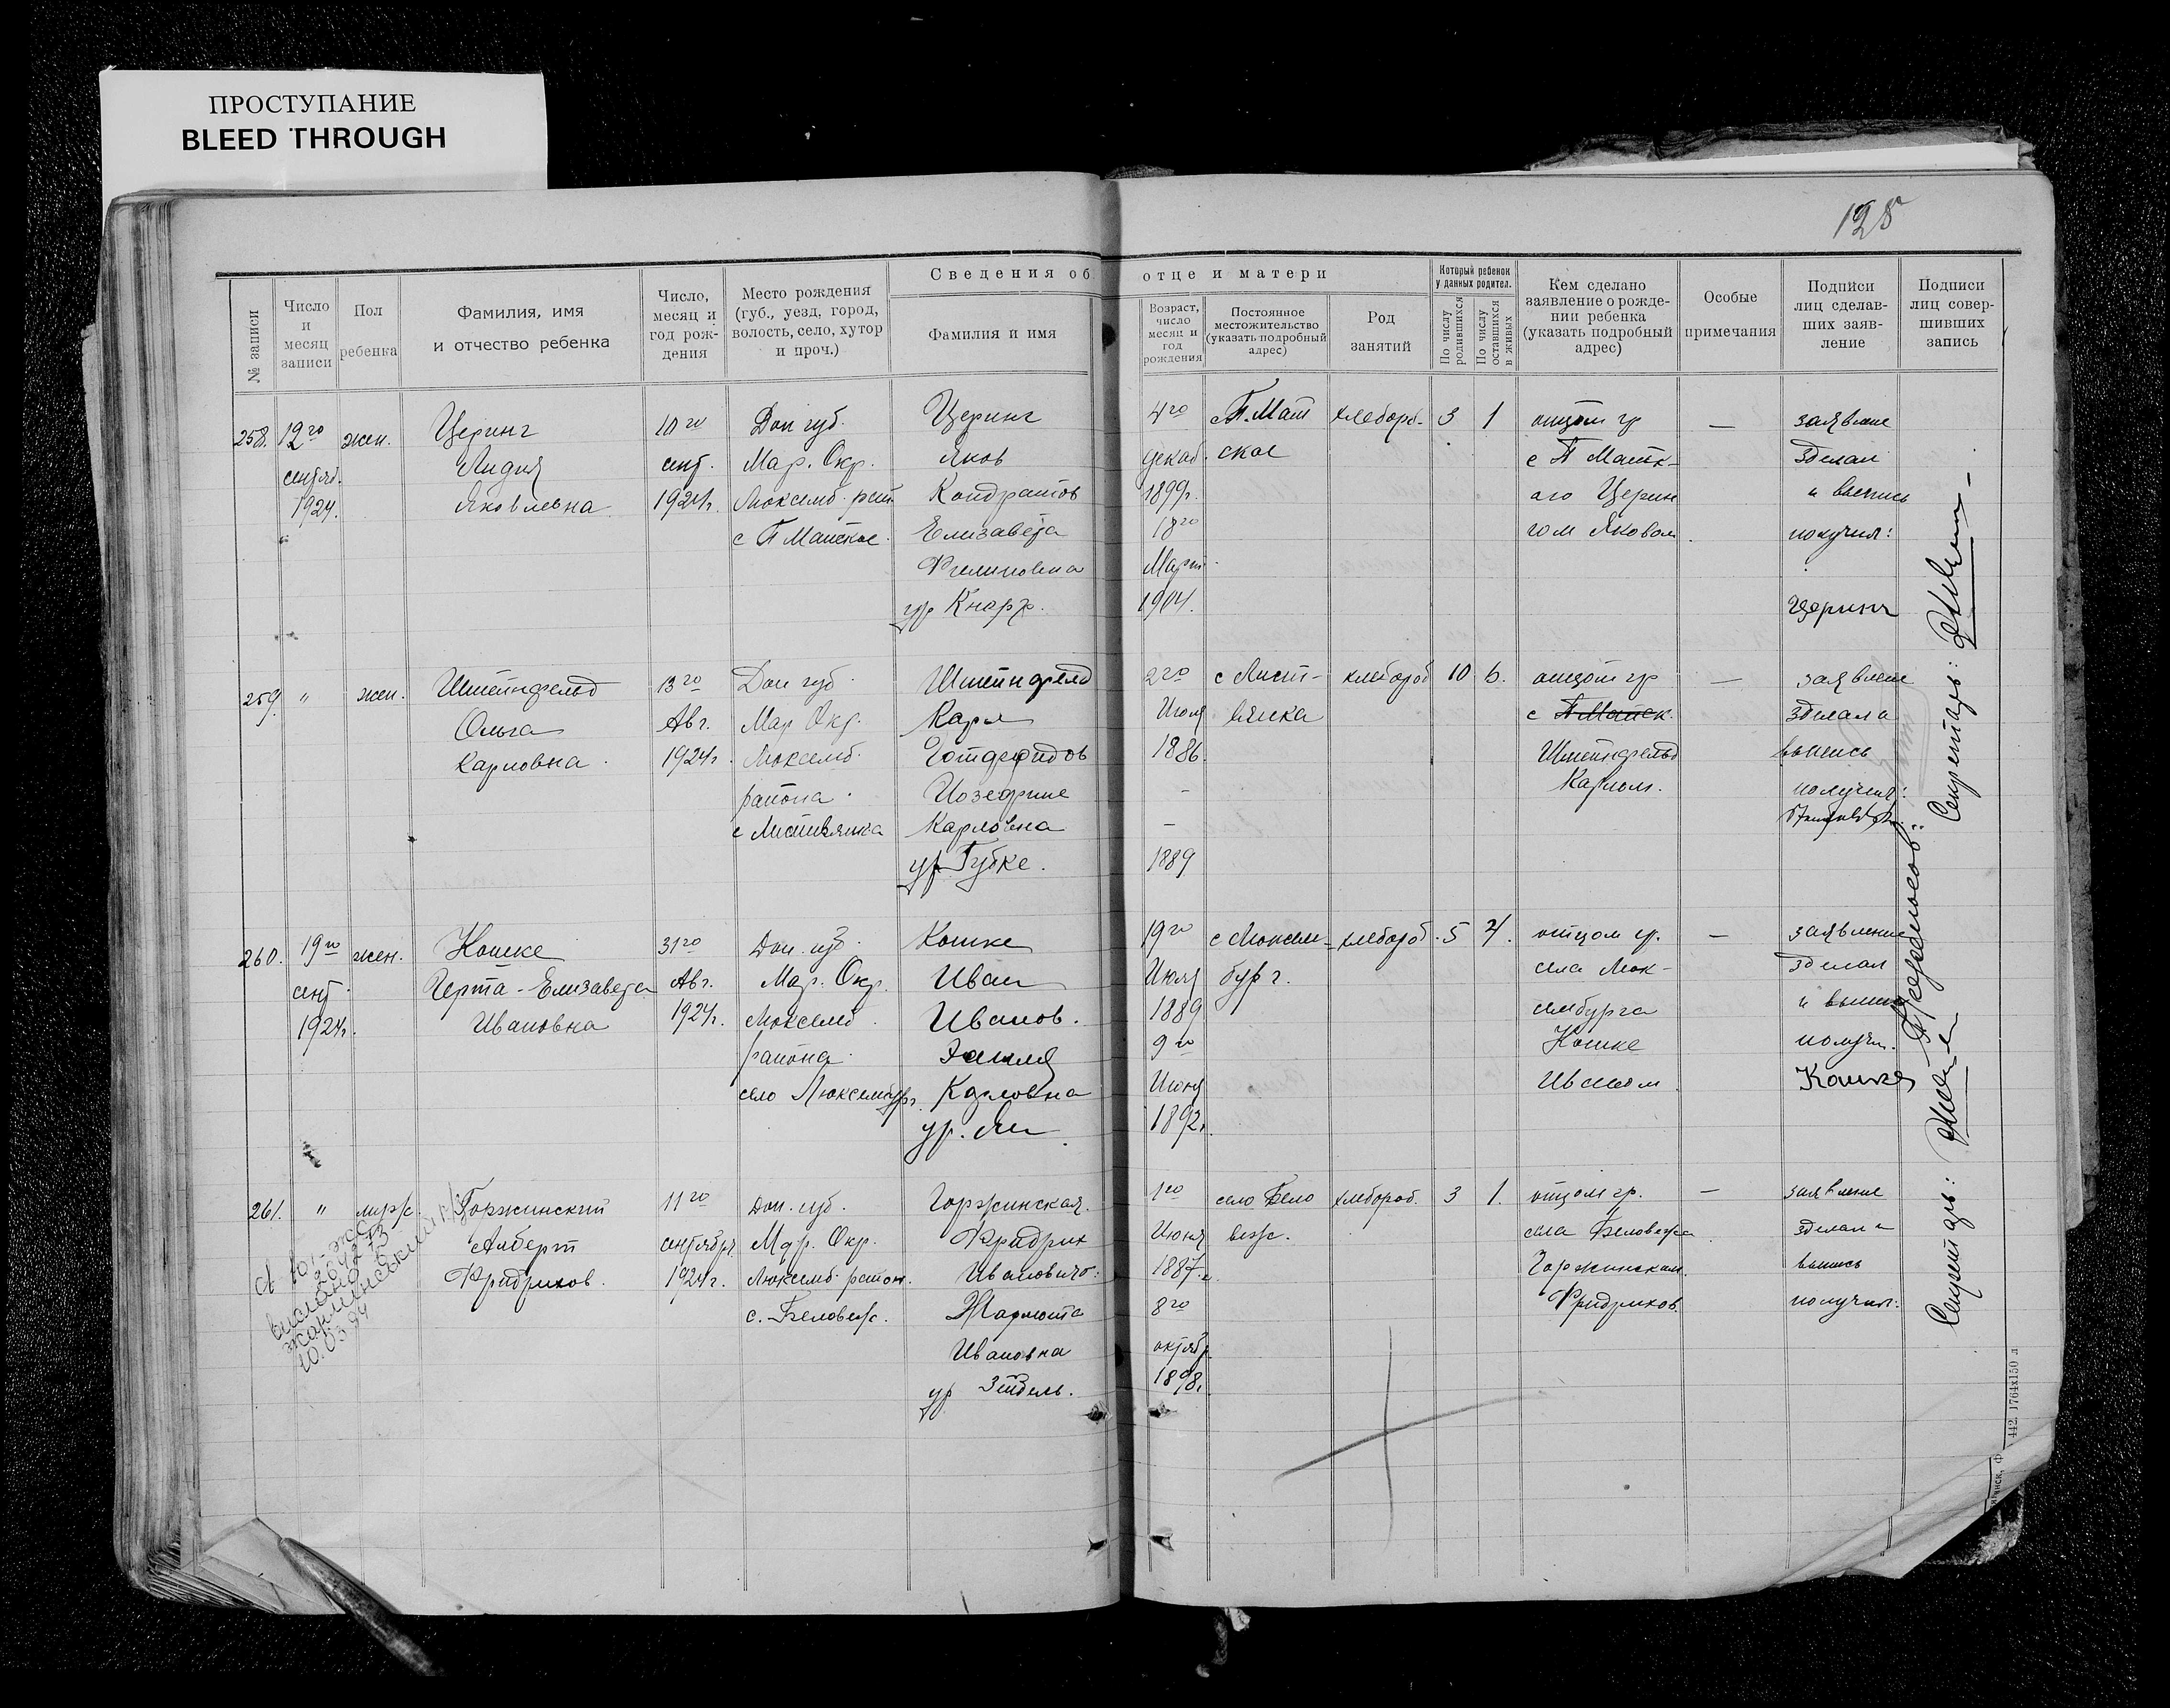 ПРОСТУПАНИЕ
BLEED THROUGH
125
Сведения об отце и матери
№ записи
Число и месяц записи
Пол ребенка
Фамилия, имя и отчество ребенка
Число, месяц и год рождения
Место рождения (губ., уезд, город, волость, село, хутор и проч.)
Фамилия и имя
Возраст, число месяц и год рождения
Постоянное местожительство (указать подробный адрес)
Род занятий
Который ребенок у данных родител.
По числу родившихся
По числу оставшихся в живых
Кем сделано заявление о рождении ребенка (указать подробный адрес)
Особые примечания
Подписи лиц сделавших заявление
Подписи лиц совершивших запись
258. 12го жен. Церинг 10го Дон губ. Церинг 4го с П. Май хлебороб. 3 1 отцом гр — заявление
сентяб. Лидия сент. Мар. Окр. Яков декаб. ское с П Майск- зделал
1924. Яковлевна 1924г. Люксемб. рай Кондратов 1899г. аго Церин и выпись
с П Майское. Елизавета 18го гом Яковом. получил:
Филиповна Март
ур Кнарр. 1904. Церинг
259. " жен. Штейнфельд 13го Дон губ. Штейнфелд 2го с Лист- хлебороб 10 6. отцом гр — заявление
Ольга Авг. Мар Окр. Карл Июля вянка с П Майск. зделала
Карловна. 1924г. Люксемб. Готдфридов 1886. Штейнфельд выпись
района. Иозефине - Карлом. получил:
с Листвянка Карловна -
ур Губке. 1889
260. 19го жен. Кошке 31го Дон. губ. Кошке 19го с Люксем- хлебороб. 5 4. отцом гр. — заявление
сент. Герта-Елизавета Авг. Мар. Окр. Иван Июля бург. села Люк- зделал
1924г. Ивановна 1924г. Люксемб. Иванов. 1889 сембурга и выпись
района. Эмилия 9го Кошке получил.
село Люксембург. Карловна Июня Иваном Кошке
ур. 1892г.
261. " мужс. Горжинский 11го Дон. губ. Горжинская. 1го село Бело хлебороб. 3 1. отцом гр. — заявление
Алберт сентября Мар. Окр. Фридрих Июня вежс. села Беловежа зделал и
Фридрихов. 1924г. Люксемб. район. Ивановичь. 1887г. Горжинским. выпись
с. Беловеж. 8го Фридрихов. получил:
Ивановна октябр
ур Зейдель. 1898г.
264273
10.03.94
Секретарь:
Секретарь:
442. 1764х150 л